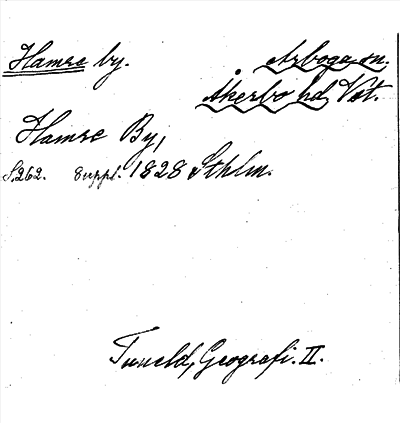 Hamre by. Arboga sn.
Åkerbo hd, Vst.
Hamre By,
S. 262. Suppl. 1828 Sthlm.
Tuneld, Geografi. II.